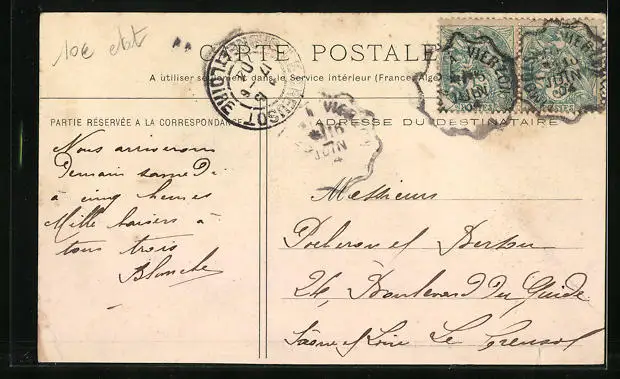 10€ etat
CARTE POSTALE
A utiliser seulement dans le Service intérieur (France, Algé
PARTIE RÉSERVÉE A LA CORRESPONDANCE
ADRESSE DU DESTINATAIRE
Nous arriverons
Demain samedi
à cinq heures
Mille baisers à
tous trois
Blanche
Messieurs
et
24, Boulevard du Guide
Saône et Loire Le Creusot
VIERZON
16
JUIN
04
VIERZON
16
JUIN
04
VIERZON
16
JUIN
CREUSOT
ET-LOIRE